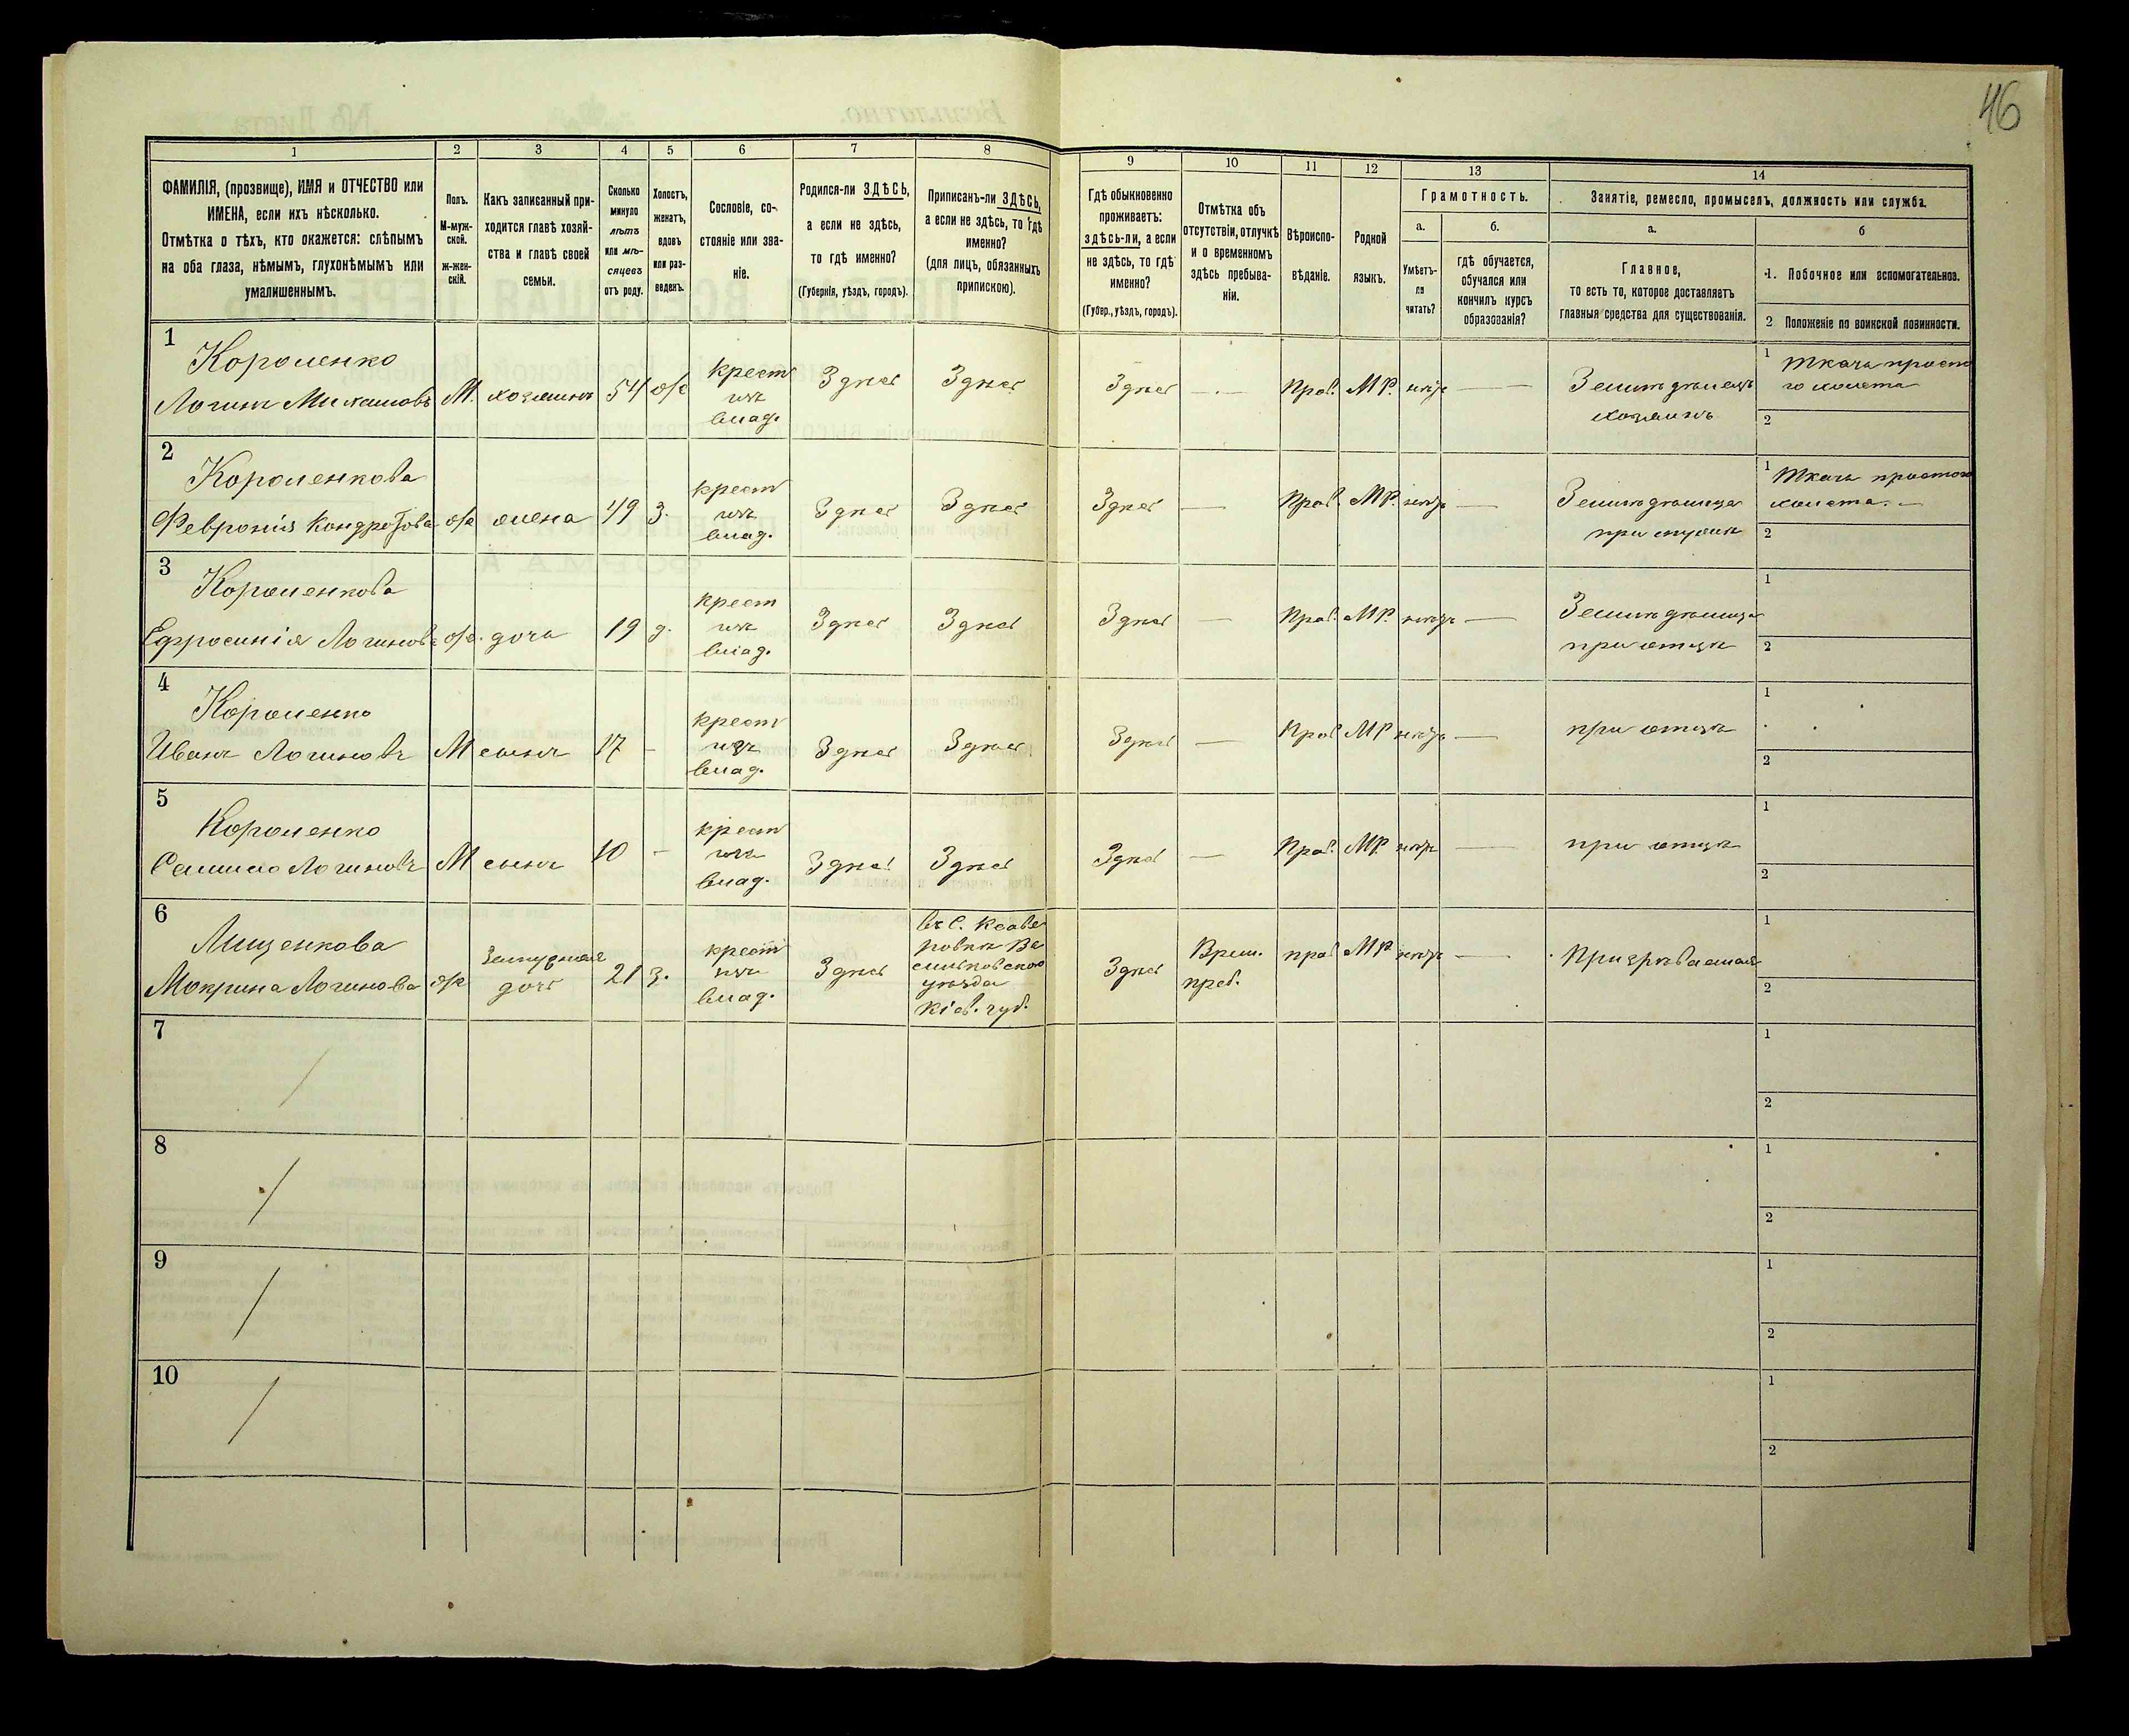 46
1 2 3 4 5 6 7 8 9 10 11 12 13 14
ФАМИЛІЯ, (прозвище), ИМЯ и ОТЧЕСТВО или
ИМЕНА, если ихъ нѣсколько.
Отмѣтка о тѣхъ, кто окажется: слѣпымъ
на оба глаза, нѣмымъ, глухонѣмымъ или
умалишеннымъ.
Полъ.
М-муж-
ской.
Ж-жен-
скій.
Какъ записанный при-
ходится главѣ хозяй-
ства и главѣ своей
семьи.
Сколько
минуло
лѣтъ
или мѣ-
сяцевъ
отъ роду.
Холостъ,
женатъ,
вдовъ
или раз-
веденъ.
Сословіе, со-
стояніе или зва-
ніе.
Родился-ли ЗДѢСЬ,
а если не здѣсь,
то гдѣ именно?
(Губернія, уѣздъ, городъ).
Приписанъ-ли ЗДѢСЬ,
а если не здѣсь, то гдѣ
именно?
(для лицъ, обязанныхъ
припискою).
Гдѣ обыкновенно
проживаетъ:
здѣсь-ли, а если
не здѣсь, то гдѣ
именно?
(Губер., уѣздъ, городъ).
Отмѣтка объ
отсутствіи, отлучкѣ
и о временномъ
здѣсь пребыва-
ніи.
Вѣроиспо-
вѣданіе.
Родной
языкъ.
Грамотность.
а.
Умѣетъ-
ли
читать?
б.
гдѣ обучается,
обучался или
кончилъ курсъ
образованія?
Занятіе, ремесло, промыселъ, должность или служба.
а.
Главное,
то есть то, которое доставляетъ
главныя средства для существованія.
б
1. Побочное или вспомогательное.
2 Положеніе по воинской повинности.
1
Короленко
Логин Михаиловъ М. хозяинъ 54 ж
крест
изъ
влад.
Здѣсь Здѣсь Здѣсь — Прав. М Р. нѣтъ —
Земледѣлецъ
хозяинъ
1 Ткачъ просто
го холста
2
2
Короленкова
Февронія Кондратова ж жена 49 з.
крест
изъ
влад.
Здѣсь Здѣсь Здѣсь — Прав. МР. нѣтъ —
Земледѣлица
при мужѣ
1 Ткачъ простого
холста. —
2
3
Короленкова
Ефросинія Логинова ж. дочь 19 д.
крест
изъ
влад.
Здѣсь Здѣсь Здѣсь — Прав. МР. нѣтъ —
Земледѣлица
при отцѣ
1
2
4
Короленко
Иванъ Логиновъ М сынъ 17 -
крест
изъ
влад.
Здѣсь Здѣсь Здѣсь — Прав МР нѣтъ —
при отцѣ
1
2
5
Короленко
Самило Логиновъ М сынъ 10 -
крест
изъ
влад.
Здѣсь Здѣсь Здѣсь — Прав. МР. нѣтъ —
при отцѣ
1
2
6
Лищенкова
Мокрина Логинова ж
Замужная
дочь
21 з.
крест
изъ
влад.
Здѣсь
въ С. Ксаве
ровкѣ Ва
сильковского
уѣзда
Кіев. губ.
Здѣсь
Врем.
преб.
прав МР нѣтъ —
Призрѣваемая
1
2
7
1
2
8
1
2
9
1
2
10
1
2